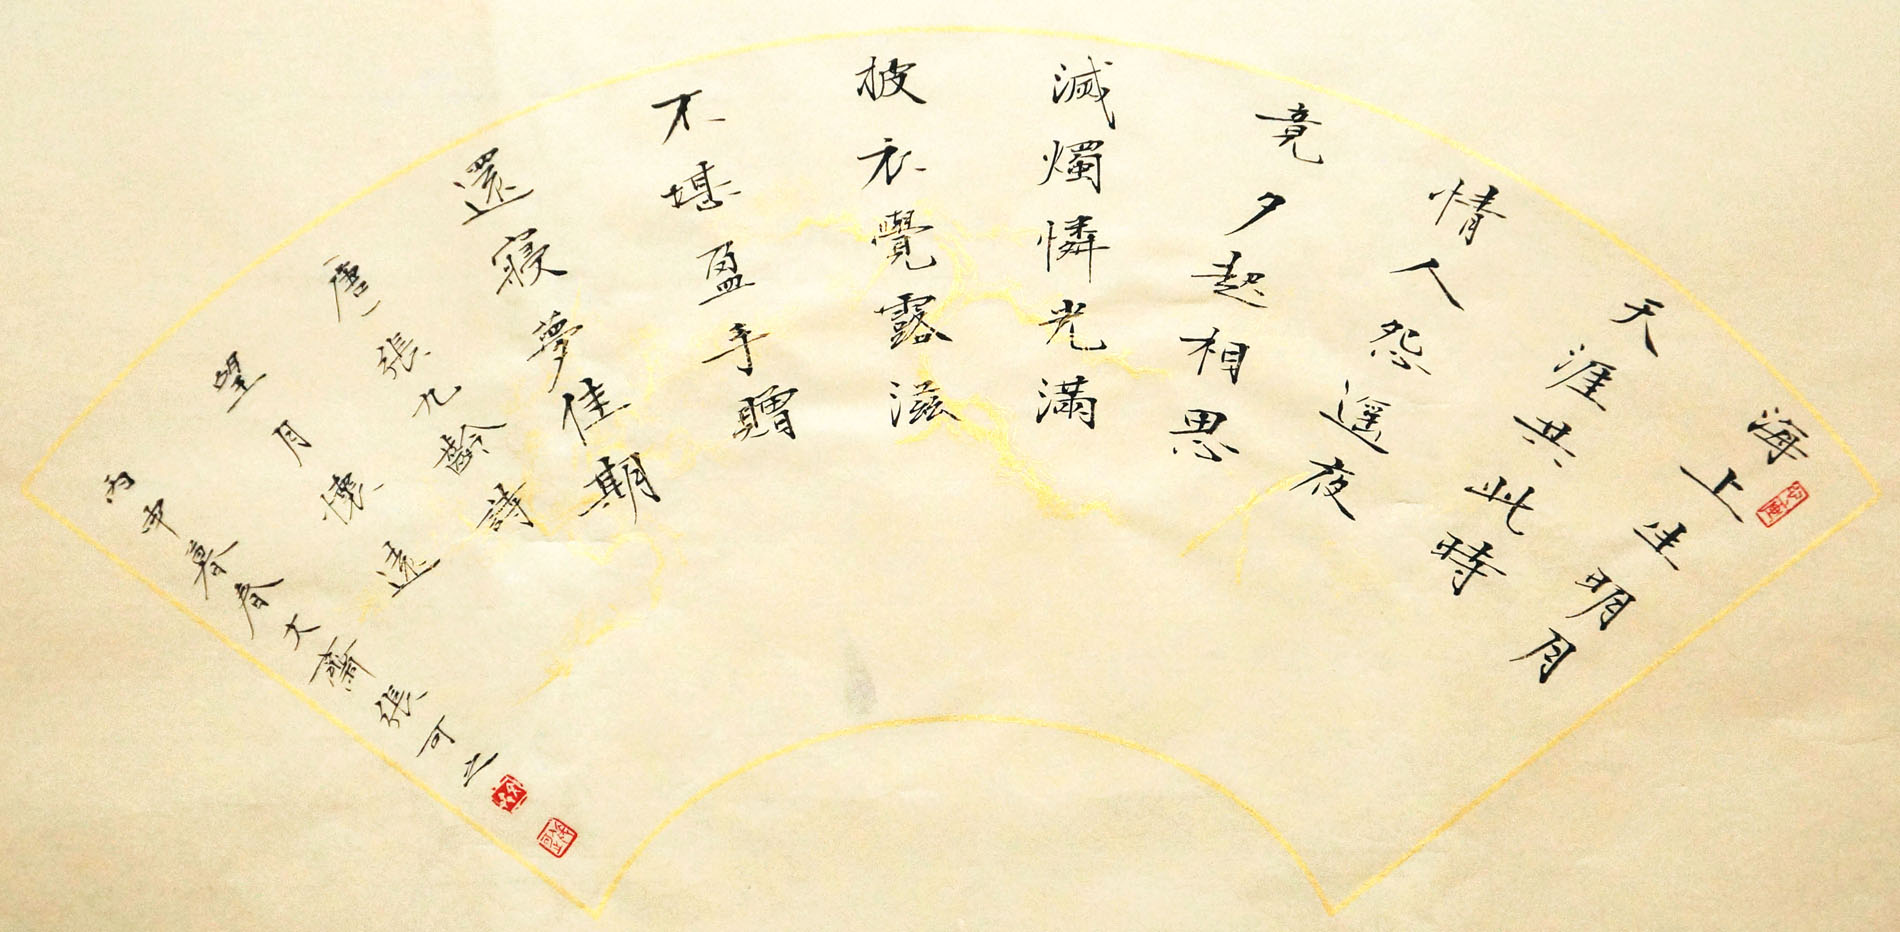 海上生明月
天涯共此時
情人怨遥夜
竟夕起相思
滅燭憐光滿
披衣覺露滋
不堪盈手贈
還寢夢佳期
唐張九齡詩
望月懷遠
丙申暮春大齋張可之